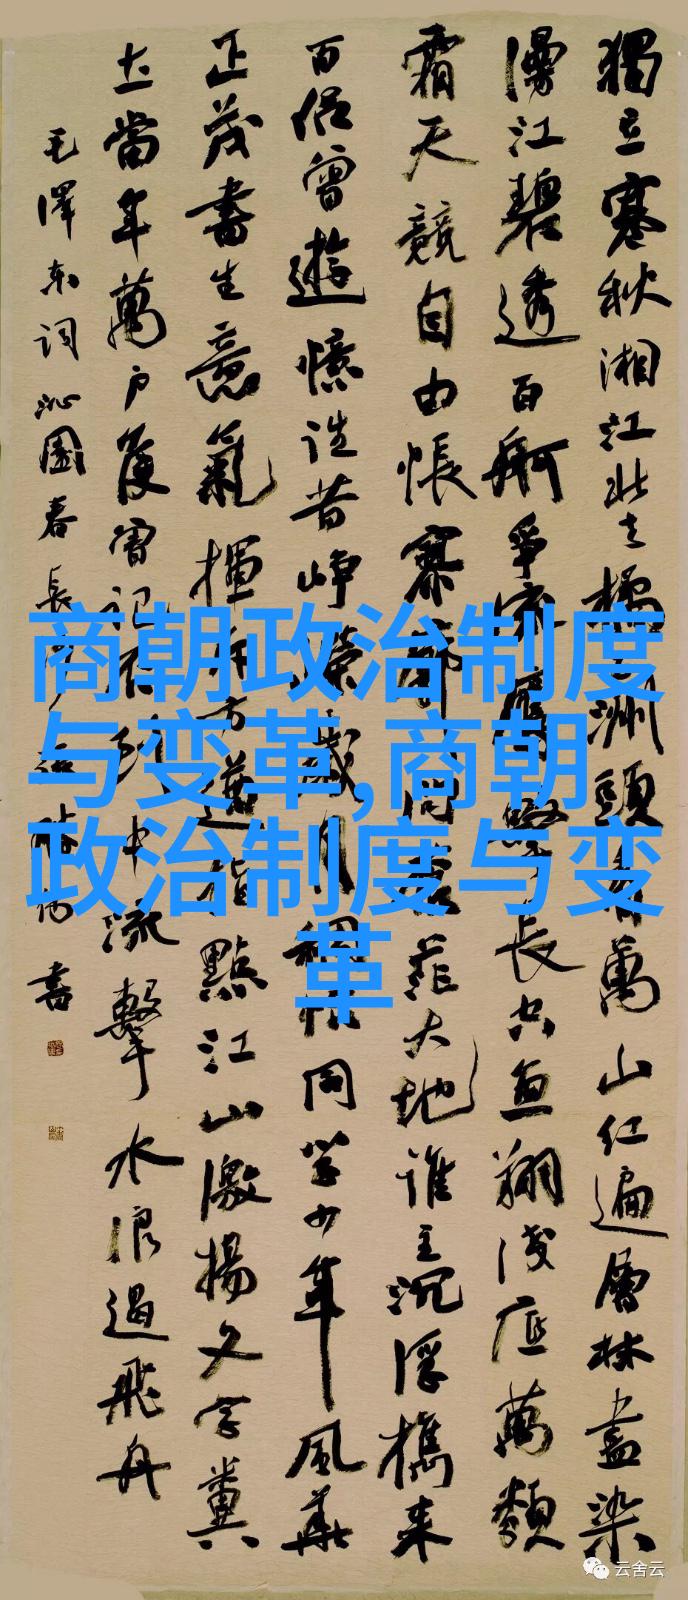 獨立寒秋湘江北去橘子洲頭看萬山紅遍層林盡染
漫江碧透百舸爭流鷹擊長空魚翔淺底萬類
霜天競自由悵寥廓問蒼茫大地誰主沉浮攜來
百侶曾遊憶往昔崢嶸歲月稠恰同學少年風華
正茂書生意氣揮斥方遒指點江山激揚文字糞
土當年萬戶侯曾記否到中流擊水浪遏飛舟
毛澤東詞沁園春長沙書
商朝政治制度
与变革,商朝
政治制度与变
革
云舍云